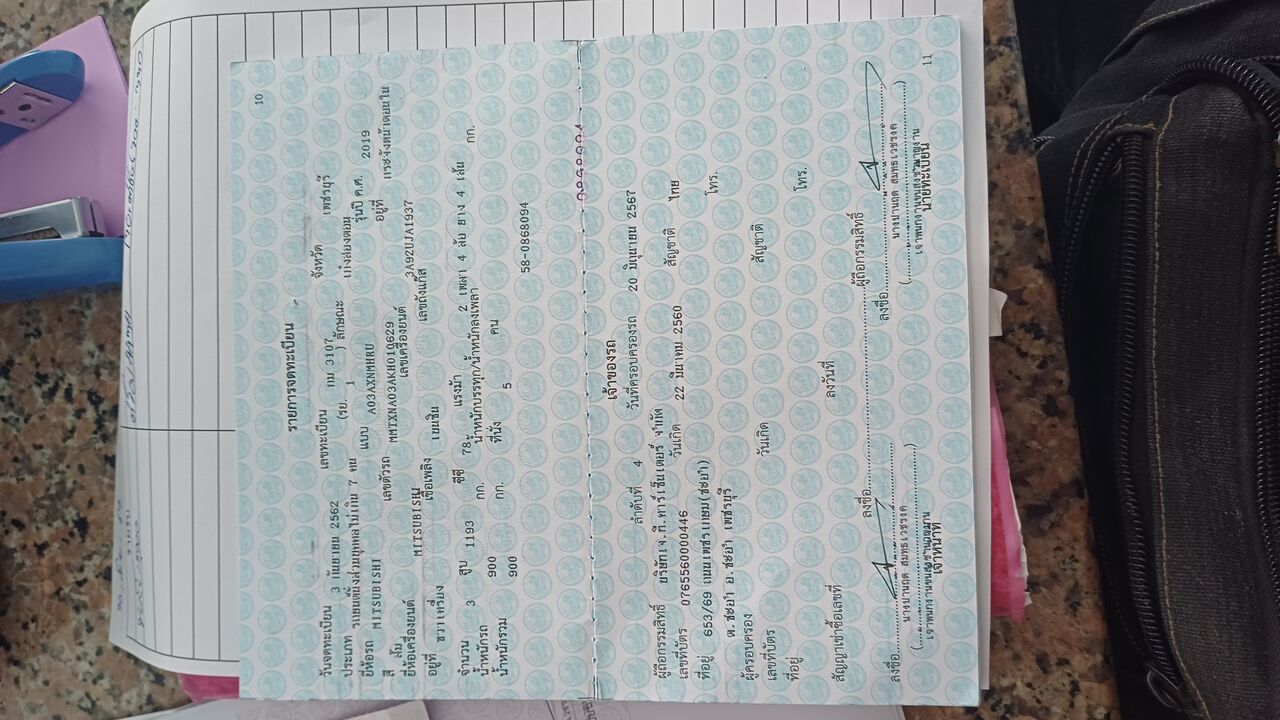 10
รายการจดทะเบียน
วันจดทะเบียน 3 เมษายน 2562 เลขทะเบียน กม 3107 จังหวัด เพชรบุรี
ประเภท รถยนต์นั่งส่วนบุคคลไม่เกิน 7 คน (รย. 1 ) ลักษณะ เก๋งสองตอน
ยี่ห้อรถ MITSUBISHI แบบ A03AXNMHRU รุ่นปี ค.ศ. 2019
สี เลขตัวรถ MMTXNA03AKH010629 อยู่ที่
ยี่ห้อเครื่องยนต์ MITSUBISHI เลขเครื่องยนต์ 3A92UJA1937
อยู่ที่ ขวาเครื่อง เชื้อเพลิง เบนซิน เลขถังแก๊ส
จำนวน 3 สูบ 1193 ซีซี 78 แรงม้า 2 เพลา 4 ล้อ ยาง 4 เส้น
น้ำหนักรถ 900 กก. น้ำหนักบรรทุก/น้ำหนักลงเพลา กก.
น้ำหนักรวม 900 กก. ที่นั่ง 5 คน
58-0868094
เจ้าของรถ
ลำดับที่ 4 วันที่ครอบครองรถ 20 มิถุนายน 2567
ผู้ถือกรรมสิทธิ์ บริษัท เจ.ที.คาร์เซ็นเตอร์ จำกัด
เลขที่บัตร 0765560000446 วันเกิด 22 มีนาคม 2560 สัญชาติ ไทย
ที่อยู่ 653/69 ถนนเพชรเกษม(ชะอำ) โทร.
ต.ชะอำ อ.ชะอำ เพชรบุรี
ผู้ครอบครอง
เลขที่บัตร วันเกิด สัญชาติ
ที่อยู่ โทร.
สัญญาเช่าซื้อเลขที่ ลงวันที่
ลงชื่อ ผู้ถือกรรมสิทธิ์
ลงชื่อ ลงชื่อ
เจ้าหน้าที่ นายทะเบียน
11